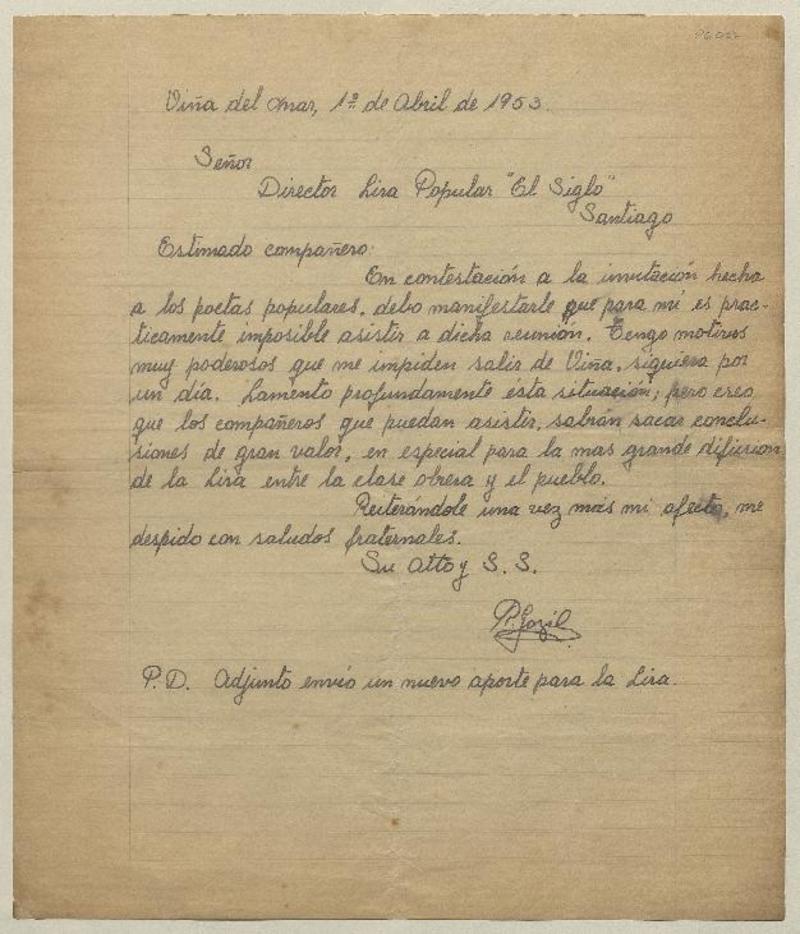 Viña del Mar, 1º de Abril de 1953.
Señor
Director Lira Popular "El Siglo"
Santiago
Estimado compañero:
En contestación a la invitación hecha
a los poetas populares, debo manifestarle que para mí es prac-
ticamente imposible asistir a dicha reunión. Tengo motivos
muy poderosos que me impiden salir de Viña, siquiera por
un día. Lamento profundamente ésta situación; pero creo
que los compañeros que puedan asistir, sabrán sacar conclu-
siones de gran valor, en especial para la mas grande difusion
de la Lira entre la clase obrera y el pueblo.
Reiterándole una vez más mi afecto, me
despido con saludos fraternales.
Su Atto y S. S.
P. Gozil
P.D. Adjunto envío un nuevo aporte para la Lira.